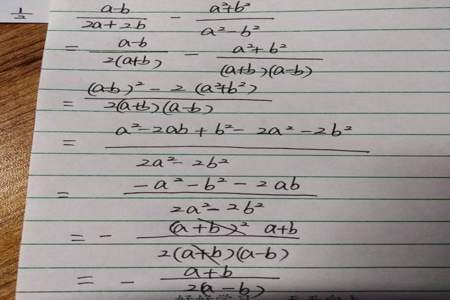 1/2
(a-b)/(2a+2b) - (a²+b²)/(a²-b²)
= (a-b)/(2(a+b)) - (a²+b²)/((a+b)(a-b))
= ((a-b)² - 2(a²+b²))/(2(a+b)(a-b))
= (a²-2ab+b²-2a²-2b²)/(2a²-2b²)
= (-a²-b²-2ab)/(2a²-2b²)
= - ((a+b)² a+b)/(2(a+b)(a-b))
= - (a+b)/(2(a-b))